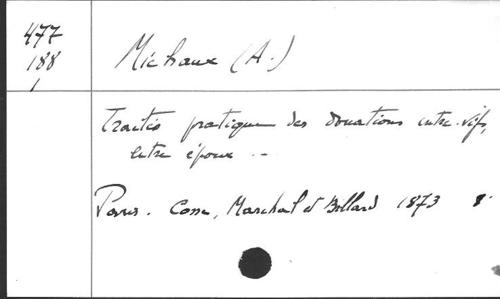 477
188
1
Michaux (A.)
Traités pratique des donations entre-vifs,
entre époux --
Paris. Cosse, Marchal et Billard 1873 8°